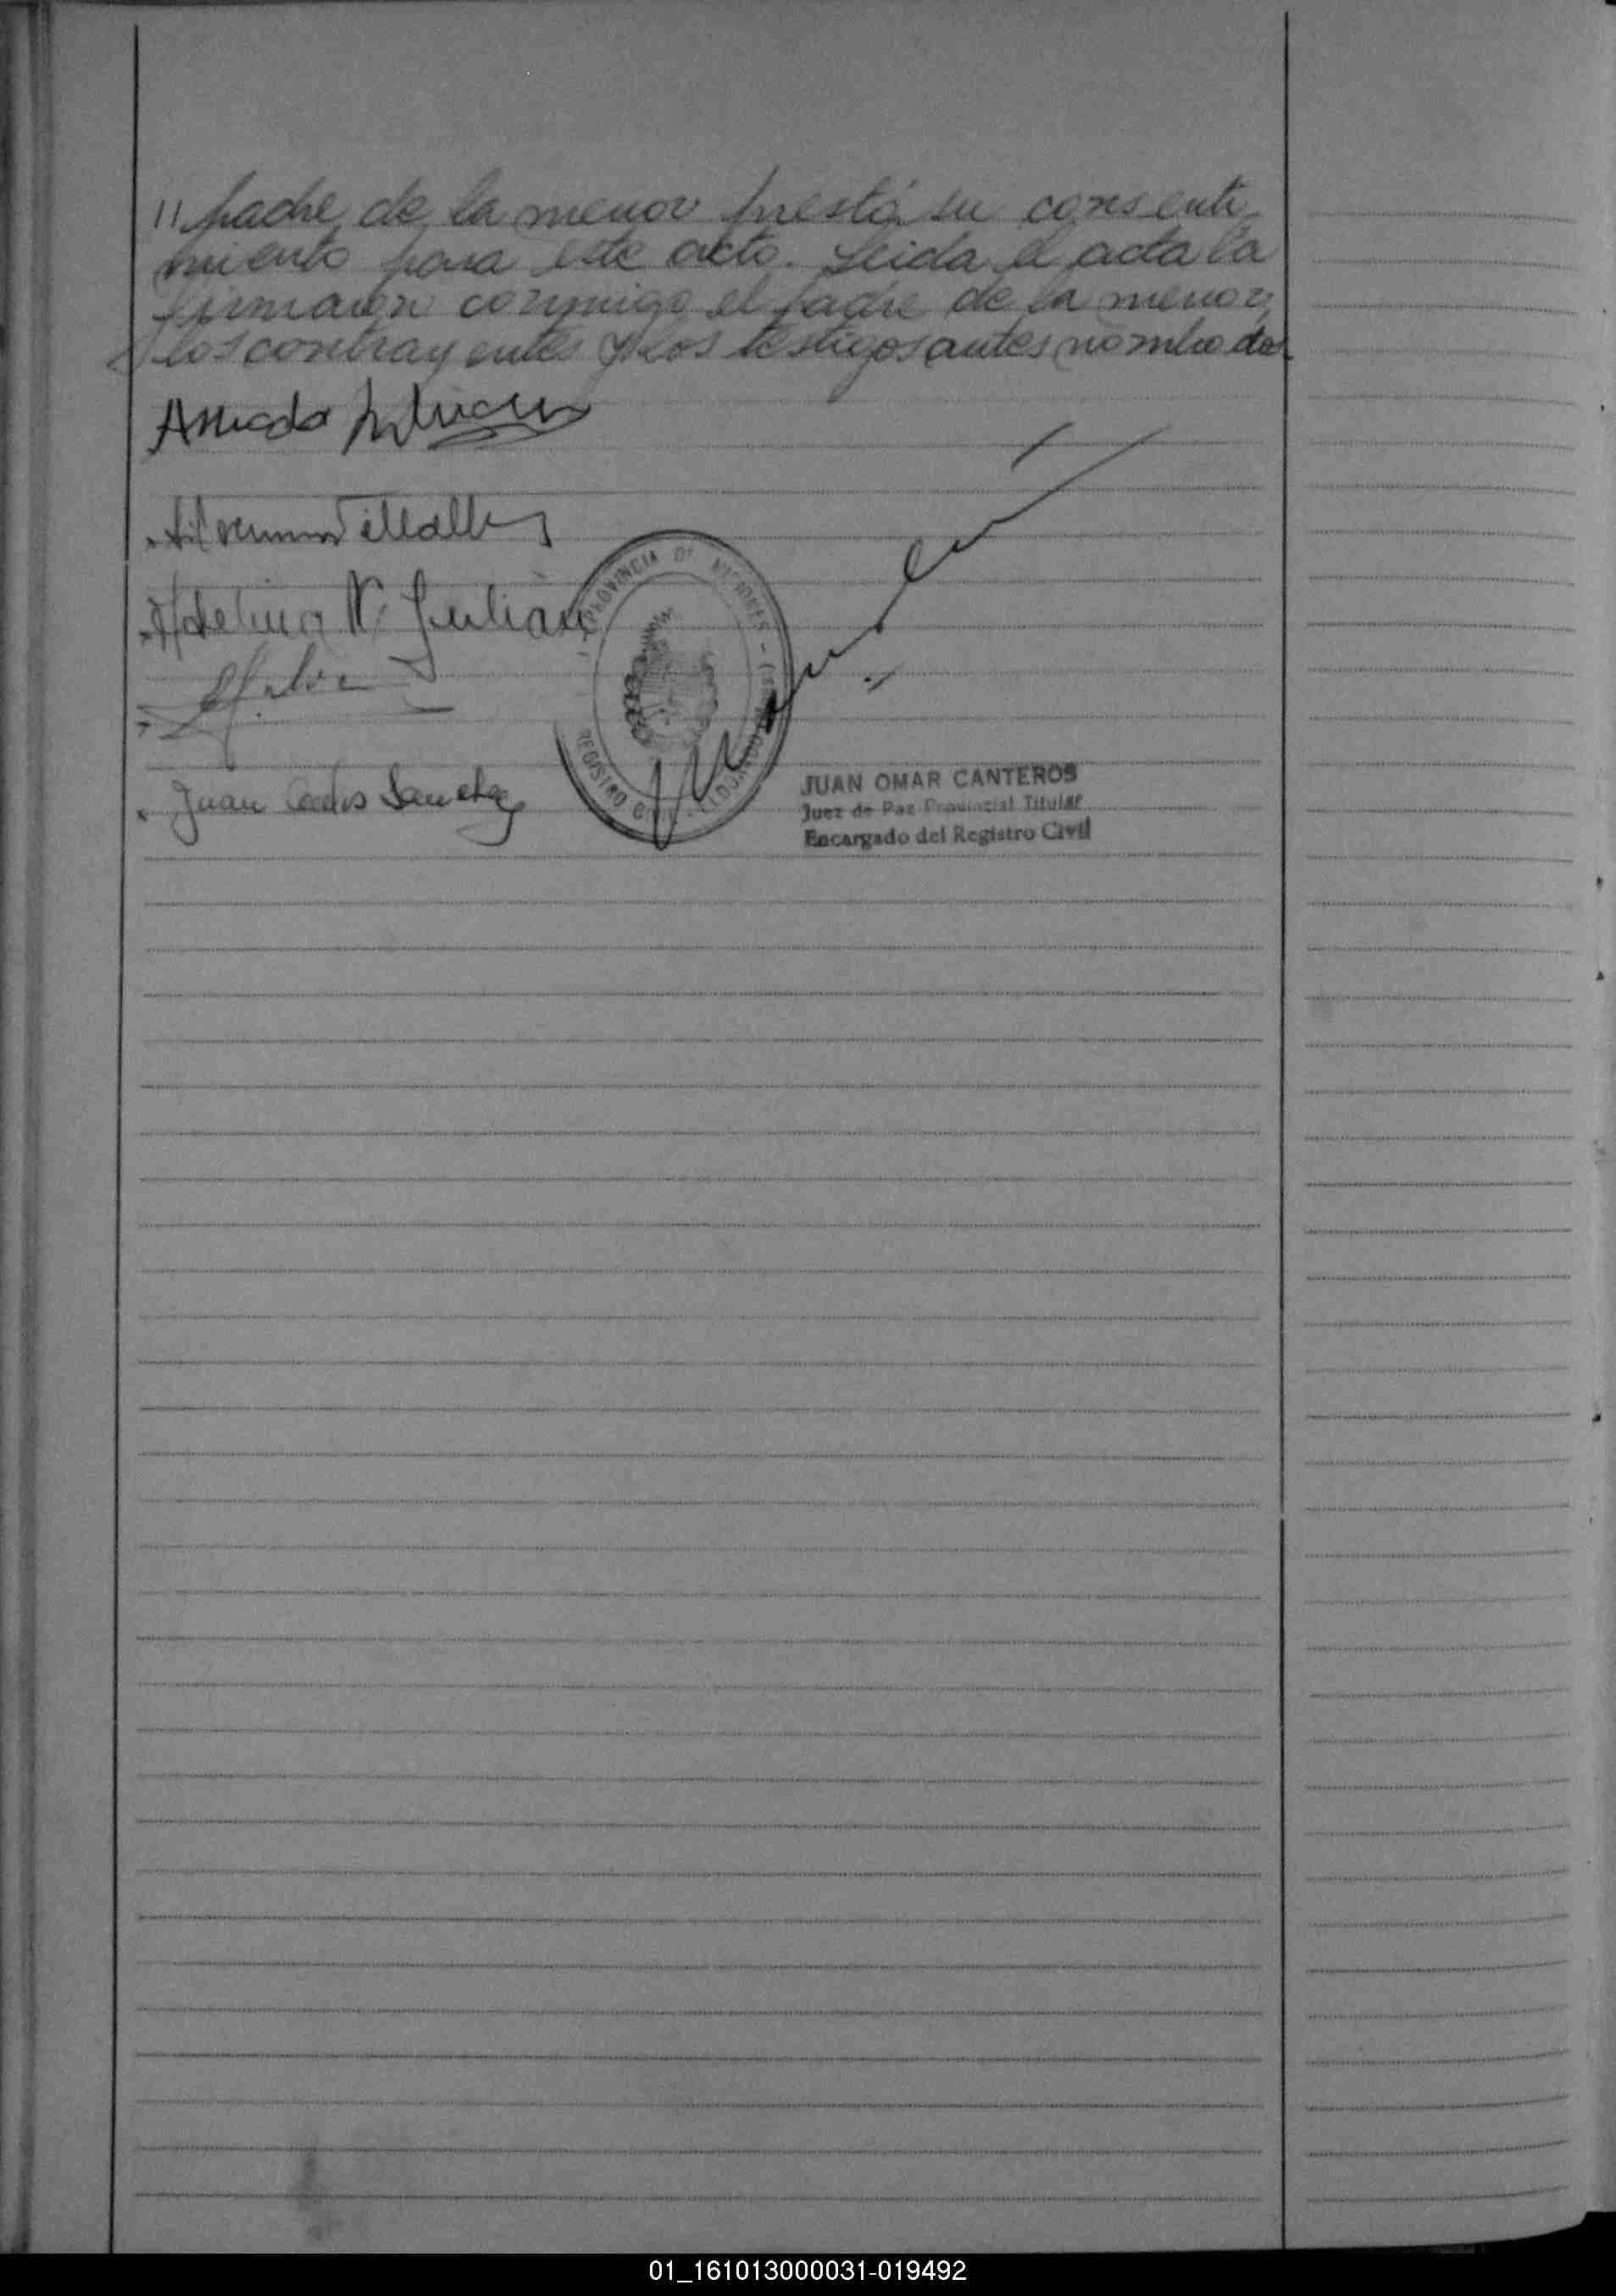 11 padre de la menor prestó su consenti
miento para este acto. Leida el acta la
firmaron conmigo el padre de la menor,
los contrayentes y los testigos antes nombrados
Villalba
Adelina N. Julian
PROVINCIA DE MISIONES
REGISTRO CIVIL
Juan Carlos Sanchez
JUAN OMAR CANTEROS
Juez de Paz Provincial Titular
Encargado del Registro Civil
01_161013000031-019492